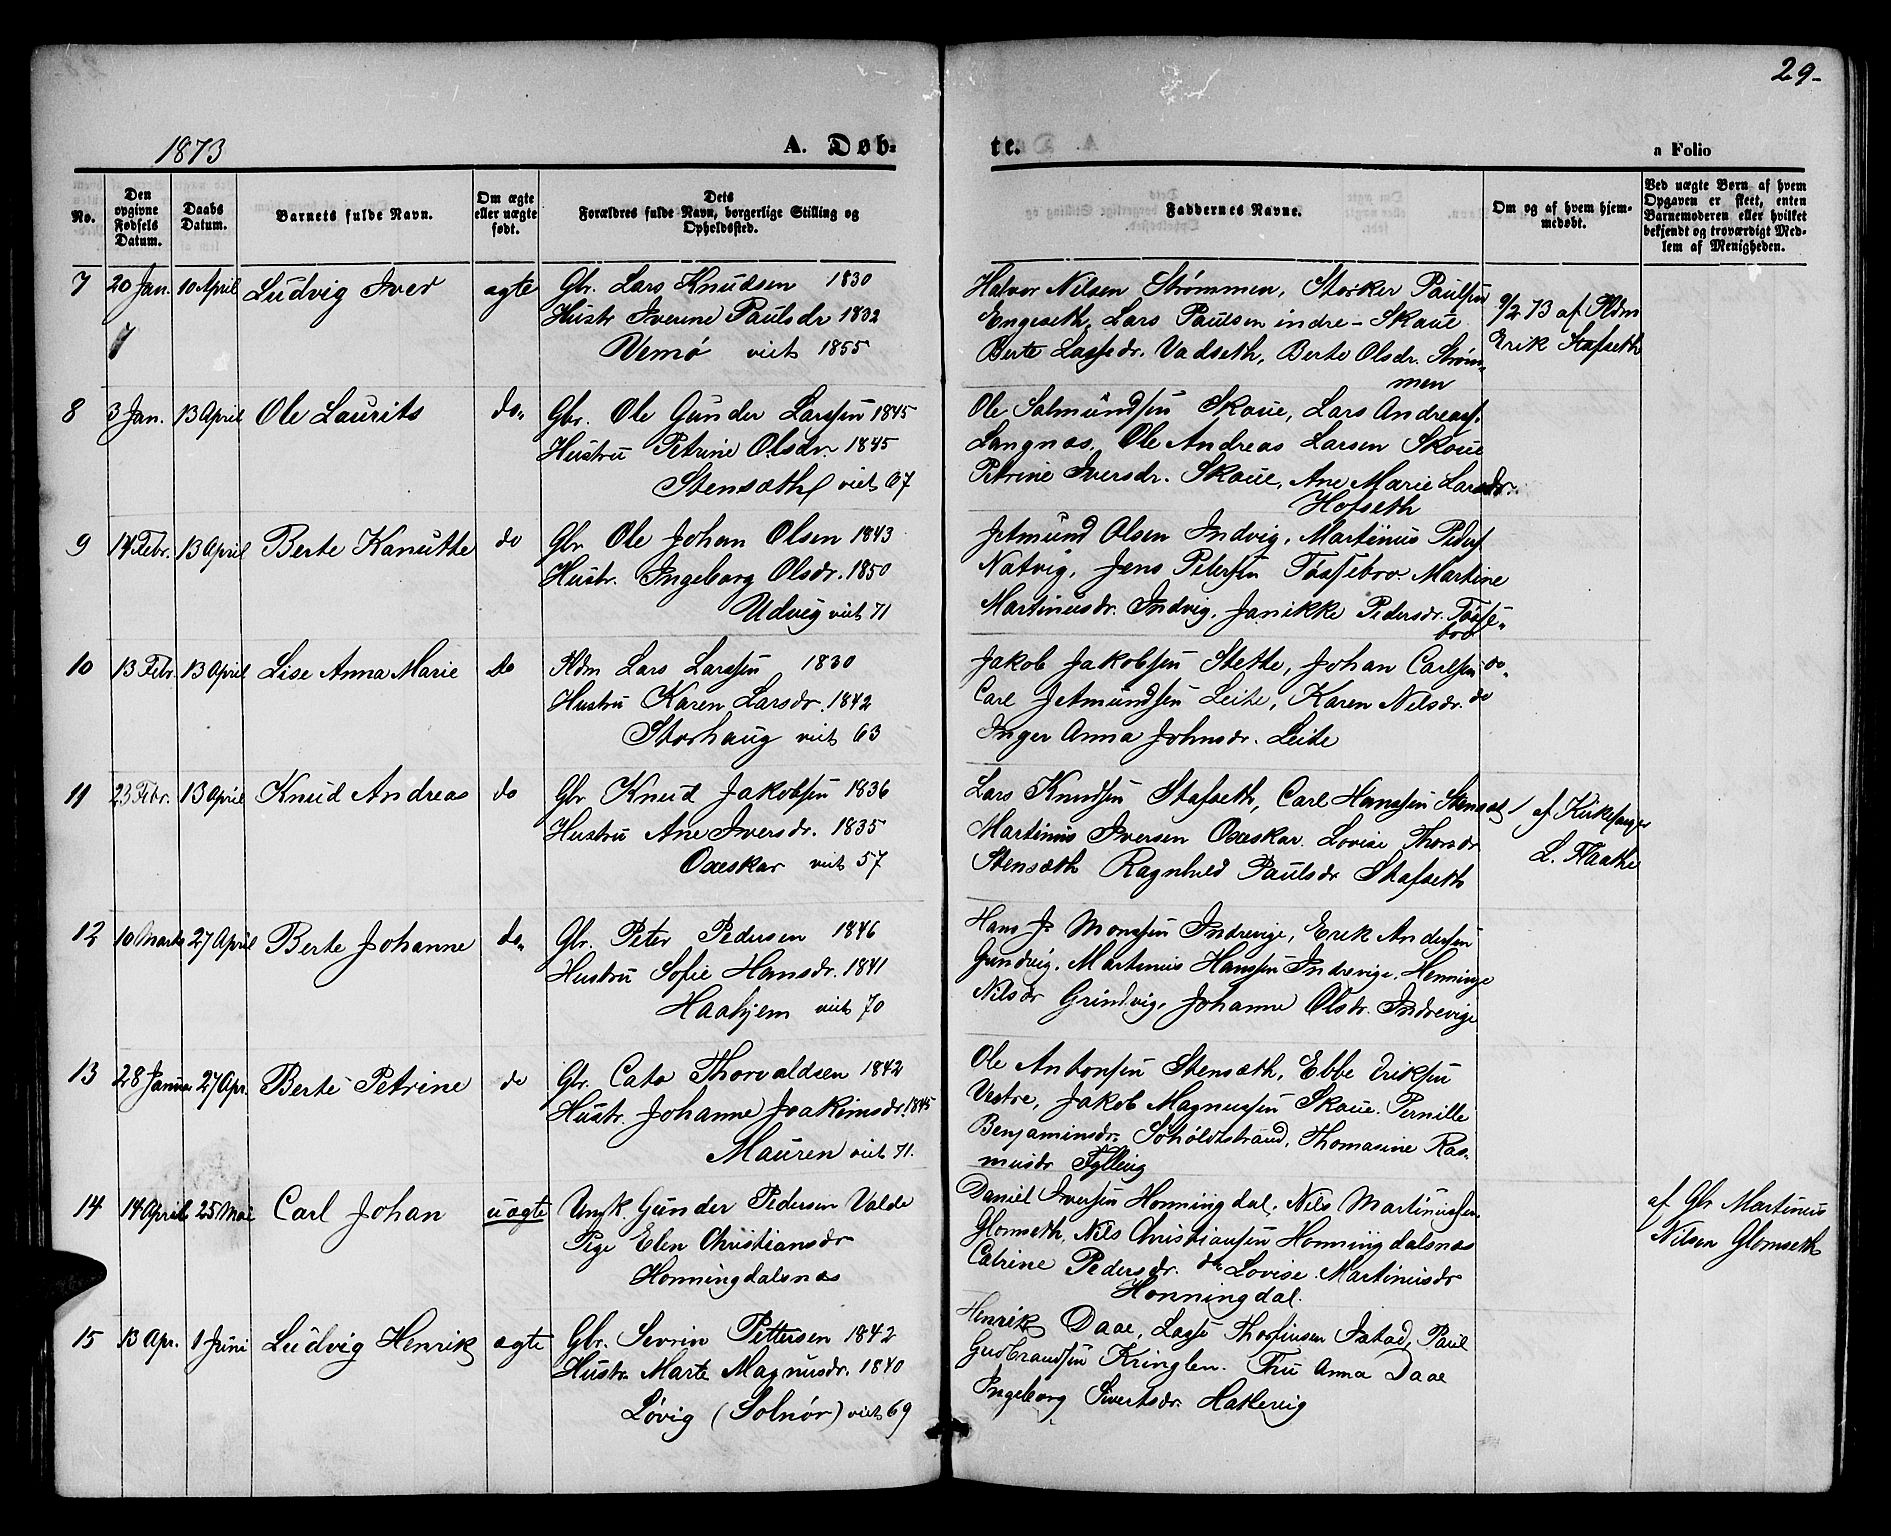 29-
1873 A. Døb- te. a Folio
No. Den opgivne Fødsels Datum. Daabs Datum. Barnets fulde Navn. Om ægte eller uægte født. Dets Forældres fulde Navn, borgerlige Stilling og Opholdssted. Faddernes Navne. Om og af hvem hjem- medøbt. Ved uægte Børn af hvem Opgaven er skeet, enten Barnemoderen eller hvilket bekjendt og troværdigt Med- lem af Menigheden.
7 20 Jan. 10 April Ludvig Iver ægte Gbr. Lars Knudsen 1830
Hustr Iverine Paulsdr 1832
Vemø viet 1855
Halvor Nilsen Strømmen, Storker Paulsen
Engeseth, Lars Paulsen indre - Skoue
Berte Lassedr. Vadseth, Berte Olsdr. Strøm-
men
9/2 73 af Kdm
Erik Stafseth
8 3 Jan. 13 April Ole Laurits do. Gbr. Ole Gunder Larssen 1845
Hustru Petrine Olsdr. 1845
Stensæth viet 67
Ole Salmundsen Skoue, Lars Andreass.
Langnæs, Ole Andreas Larsen Skoue
Petrine Iversdr. Skoue, Ane Marie Larsdr.
Hofseth
9 14 Febr. 13 April Berte Kanutte do Gbr Ole Johan Olsen 1843
Hustr. Ingeborg Olsdr. 1850
Udvig viet 71
Jetmund Olsen Indvig, Martinus Peders
Natvig, Jens Petersen Tøssebro Martine
Martinusdr. Indvig, Janikke Pedersdr. Tøsse-
bro
10 13 Febr. 13 April Lise Anna Marie do Kdm Lars Larssen 1830
Hustru Karen Larsdr. 1842
Storhaug viet 63
Jakob Jakobsen Stette, Johan Carlsen do.
Carl Jetmundsen Leite, Karen Nilsdr. do
Inger Anna Johnsdr. Leite
11 23 Febr. 13 April Knud Andreas do Gbr Knud Jakobsen 1836
Hustru Ane Iversdr. 1835
Oxeskar viet 57
Lars Knudsen Stafseth, Carl Hanssen Stensæt
Martinus Iversen Oxeskar. Lovise Thorsdr
Stensæth Ragnhild Paulsdr Stafseth
/ af Kirkesanger
L. Flaathe
12 10 Marts 27 April Berte Johanne do. Gbr. Peter Pedersen 1846
Hustru Sofie Hansdr. 1841
Haahjem viet 70
Hans J. Monssen Indrevige, Erik Anderssen
Grindvig, Martinus Hanssen Indrevige, Henninge
Nilsdr Grindvig, Johanne Olsdr. Indrevige
13 28 Januar 27 Apr. Berte Petrine do Gbr. Cato Thorvaldsen 1842
Hustr. Johanne Joakimsdr. 1845
Mauren viet 71.
Ole Antonsen Stensæth, Ebbe Eriksen
Vestre, Jakob Magnussen Skoue. Pernille
Benjaminsdr. Søholdtstrand, Thomasine Ras-
musdr Fylling
14 14 April 25 Mai Carl Johan uægte Ungk. Gunder Pedersen Valde
Pige Elen Christiansdr
Honningdalsnæs
Daniel Iversen Honningdal, Nils Martinussen
Glomseth, Nils Christiansen Honningdalsnæs
Catrine Pedersdr. do Lovise Martinusdr
Honningdal.
af Gbr Martinus
Nilsen Glomseth
15 13 Apr. 1 Juni Ludvig Henrik ægte Gbr. Sevrin Pettersen 1842
Hustr. Marte Magnusdr. 1840
Løvig (Solnør) viet 69
Henrik Daae, Lagte Thorstinsen Istad, Paul
Gudbrandsen Kringlen. Fru Anna Daae
Ingeborg Sivertsdr. Hatlevig